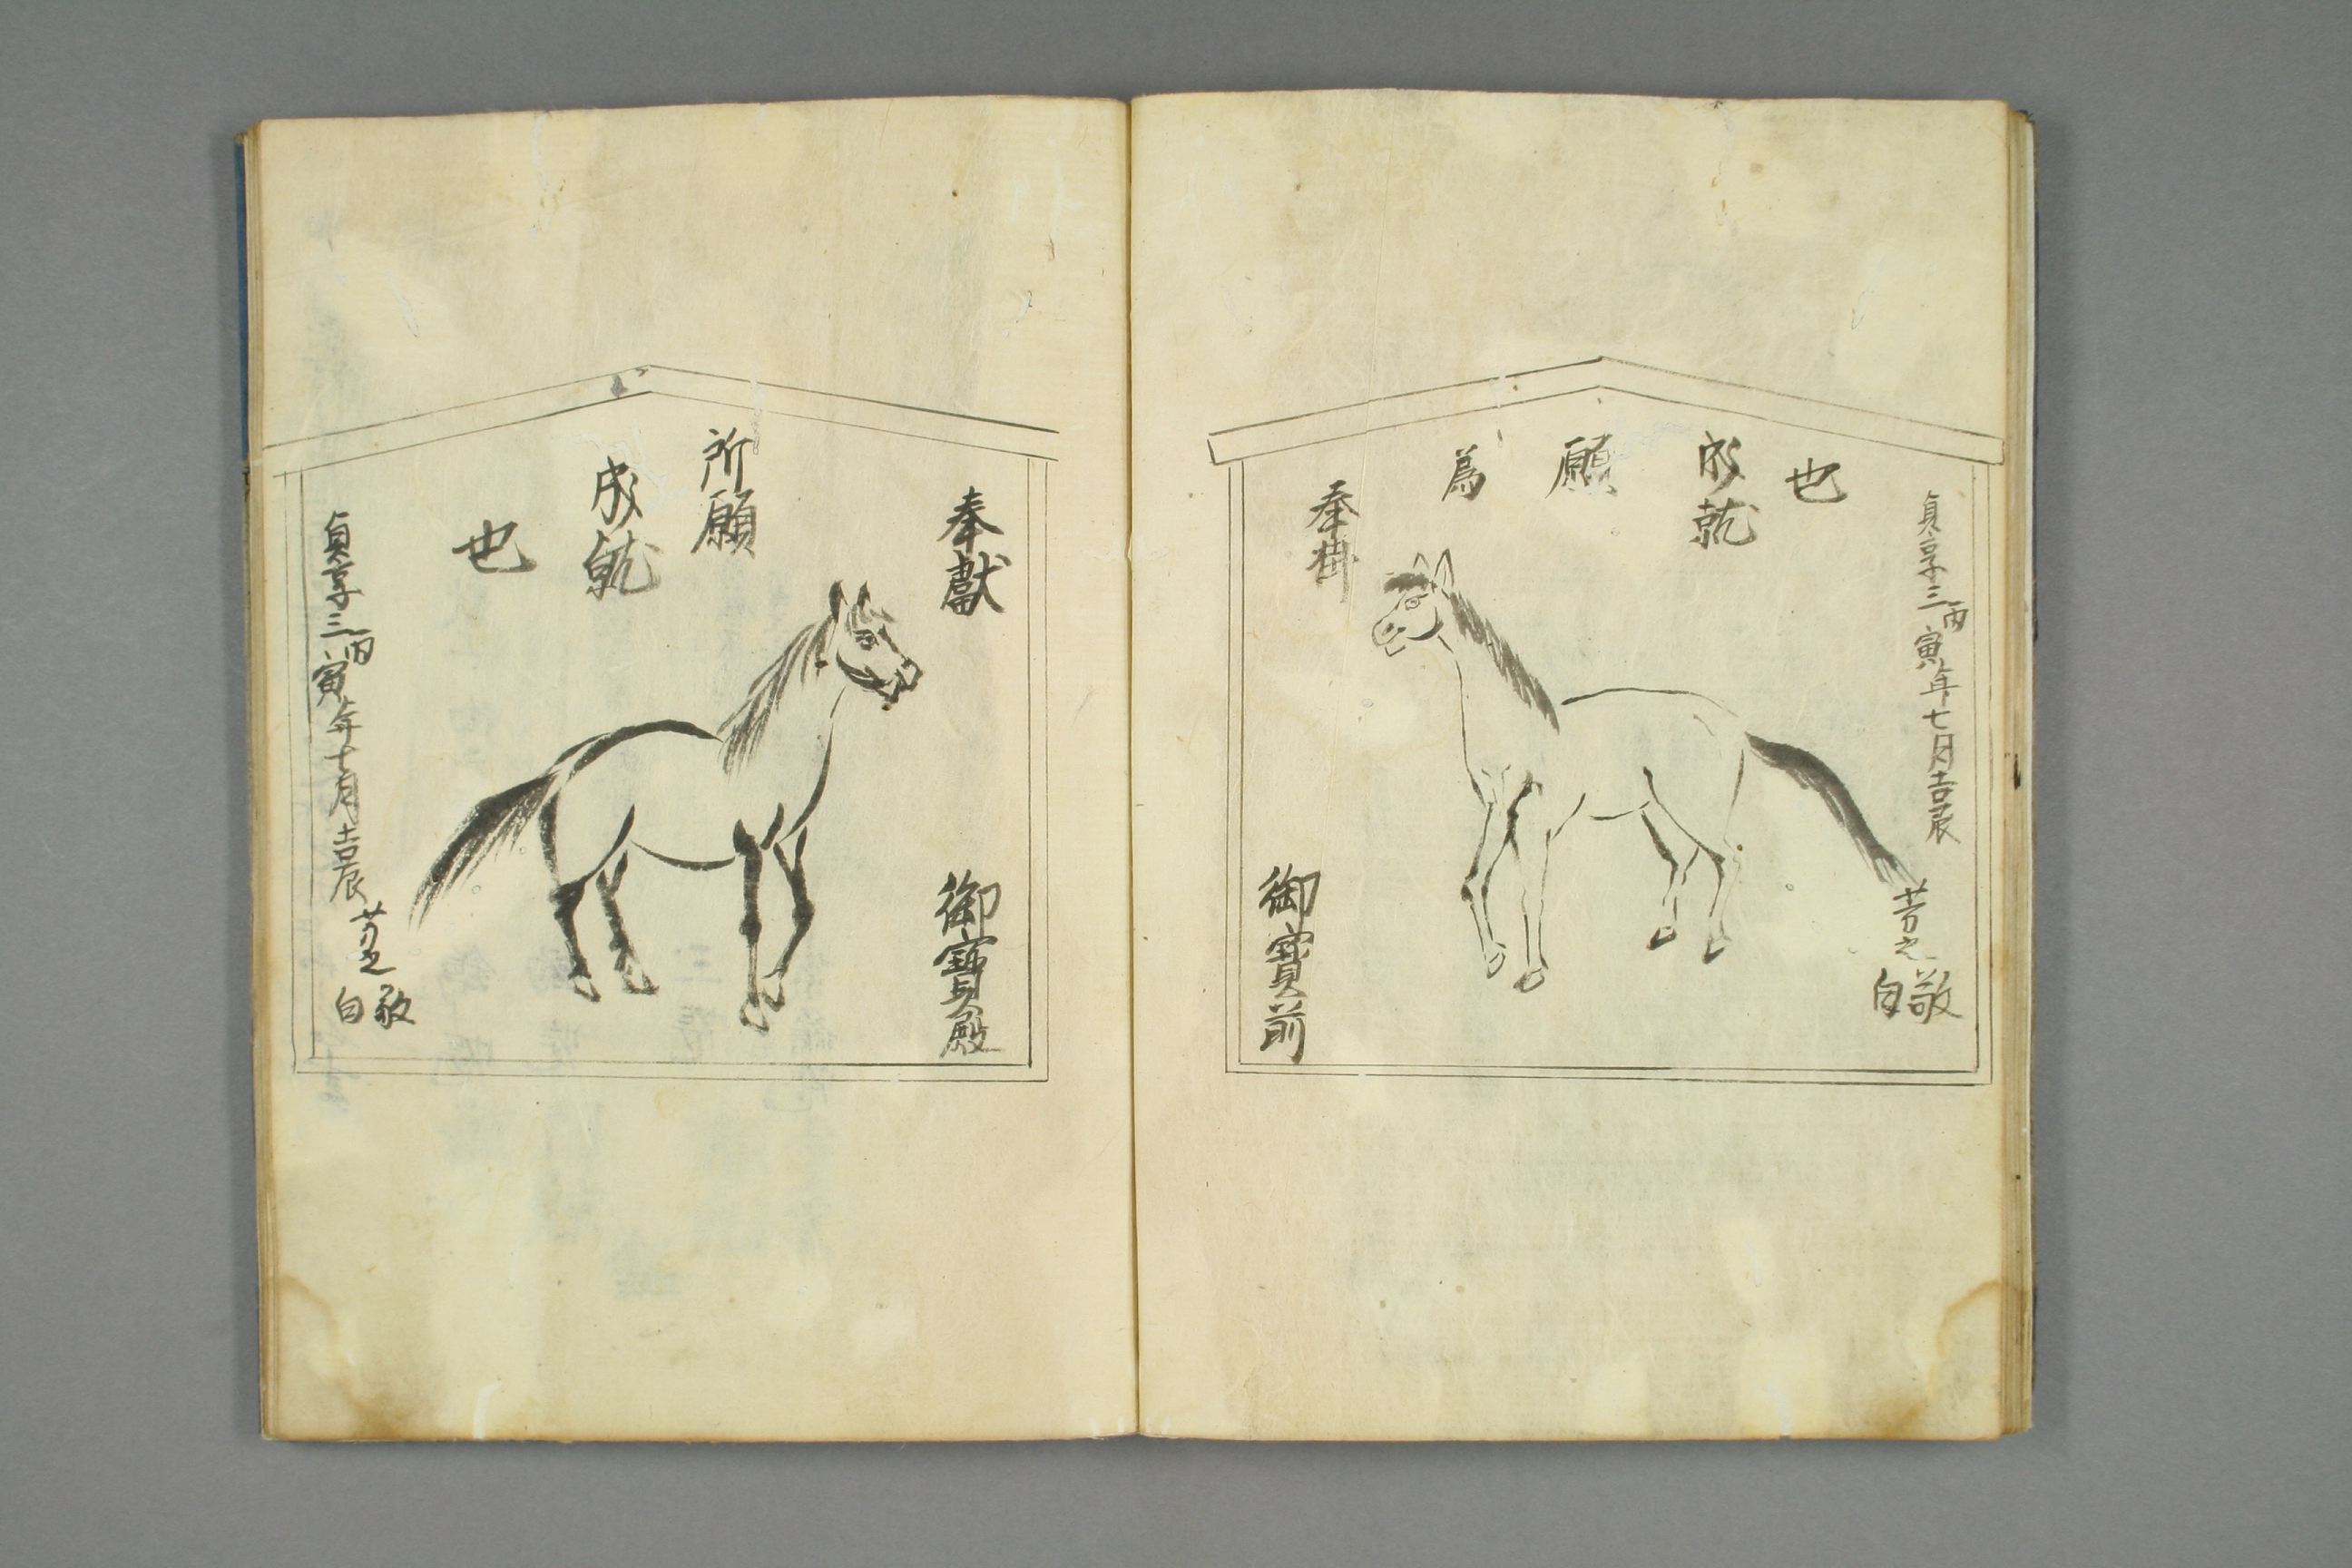 奉掛
御寳前
為
願
成就
也
貞享三丙寅年七月吉辰
芳之
敬白
奉獻
御寳殿
所願
成就
也
貞享三丙寅年七月吉辰
芳之
敬白